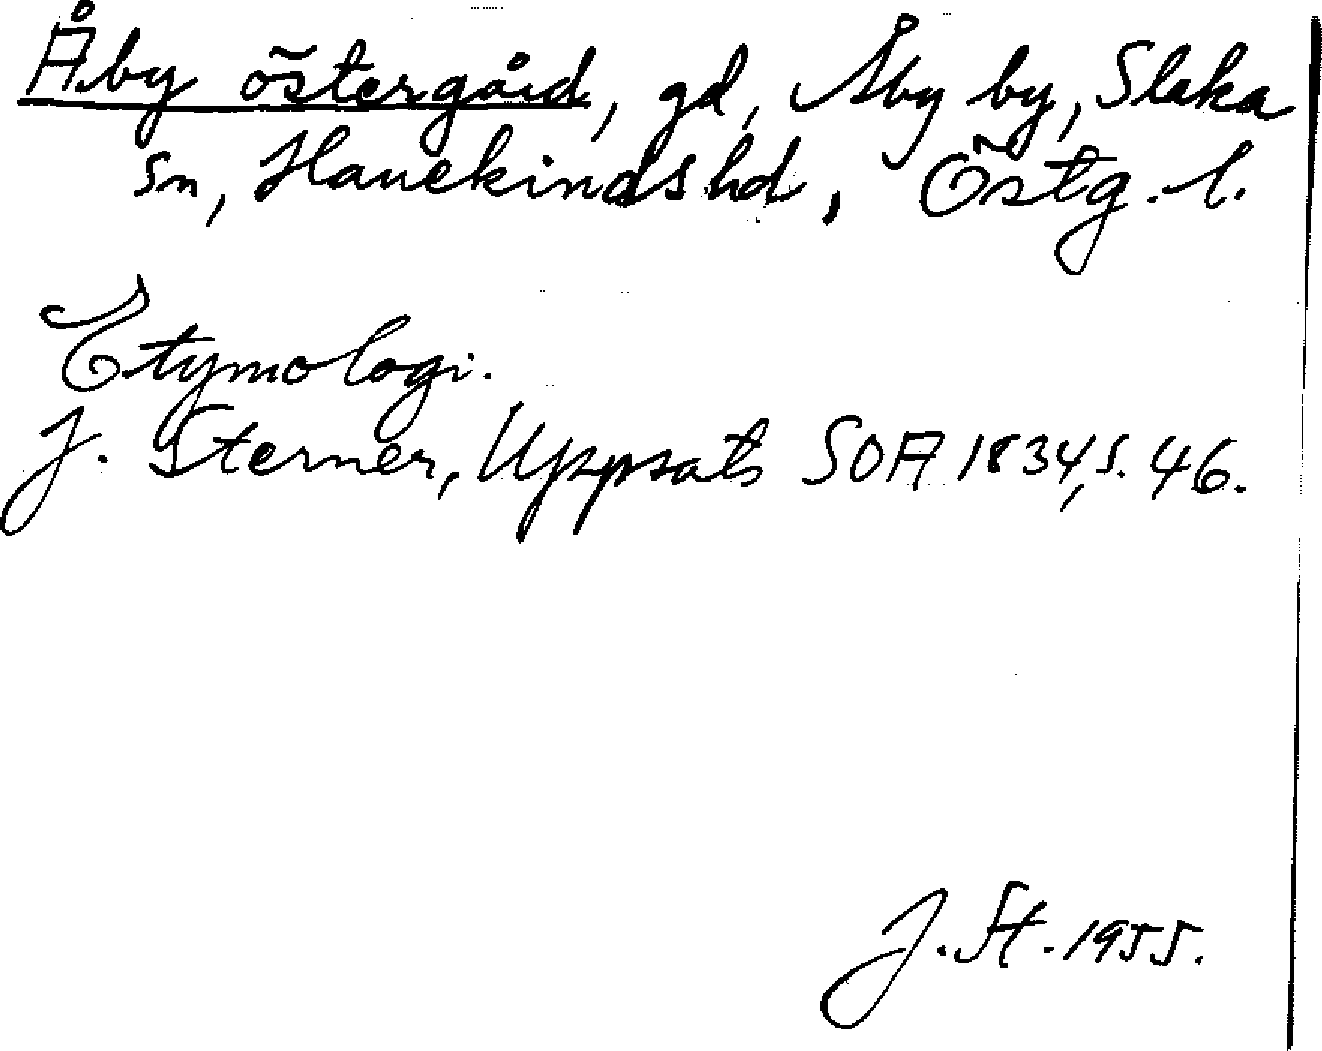 Åby östergård, gd, Åby by, Slaka
sn, Hanekinds hd, Östg. l.
Etymologi.
J. Sterner, Uppsats SOA 1834, s. 46.
J. St. 1955.